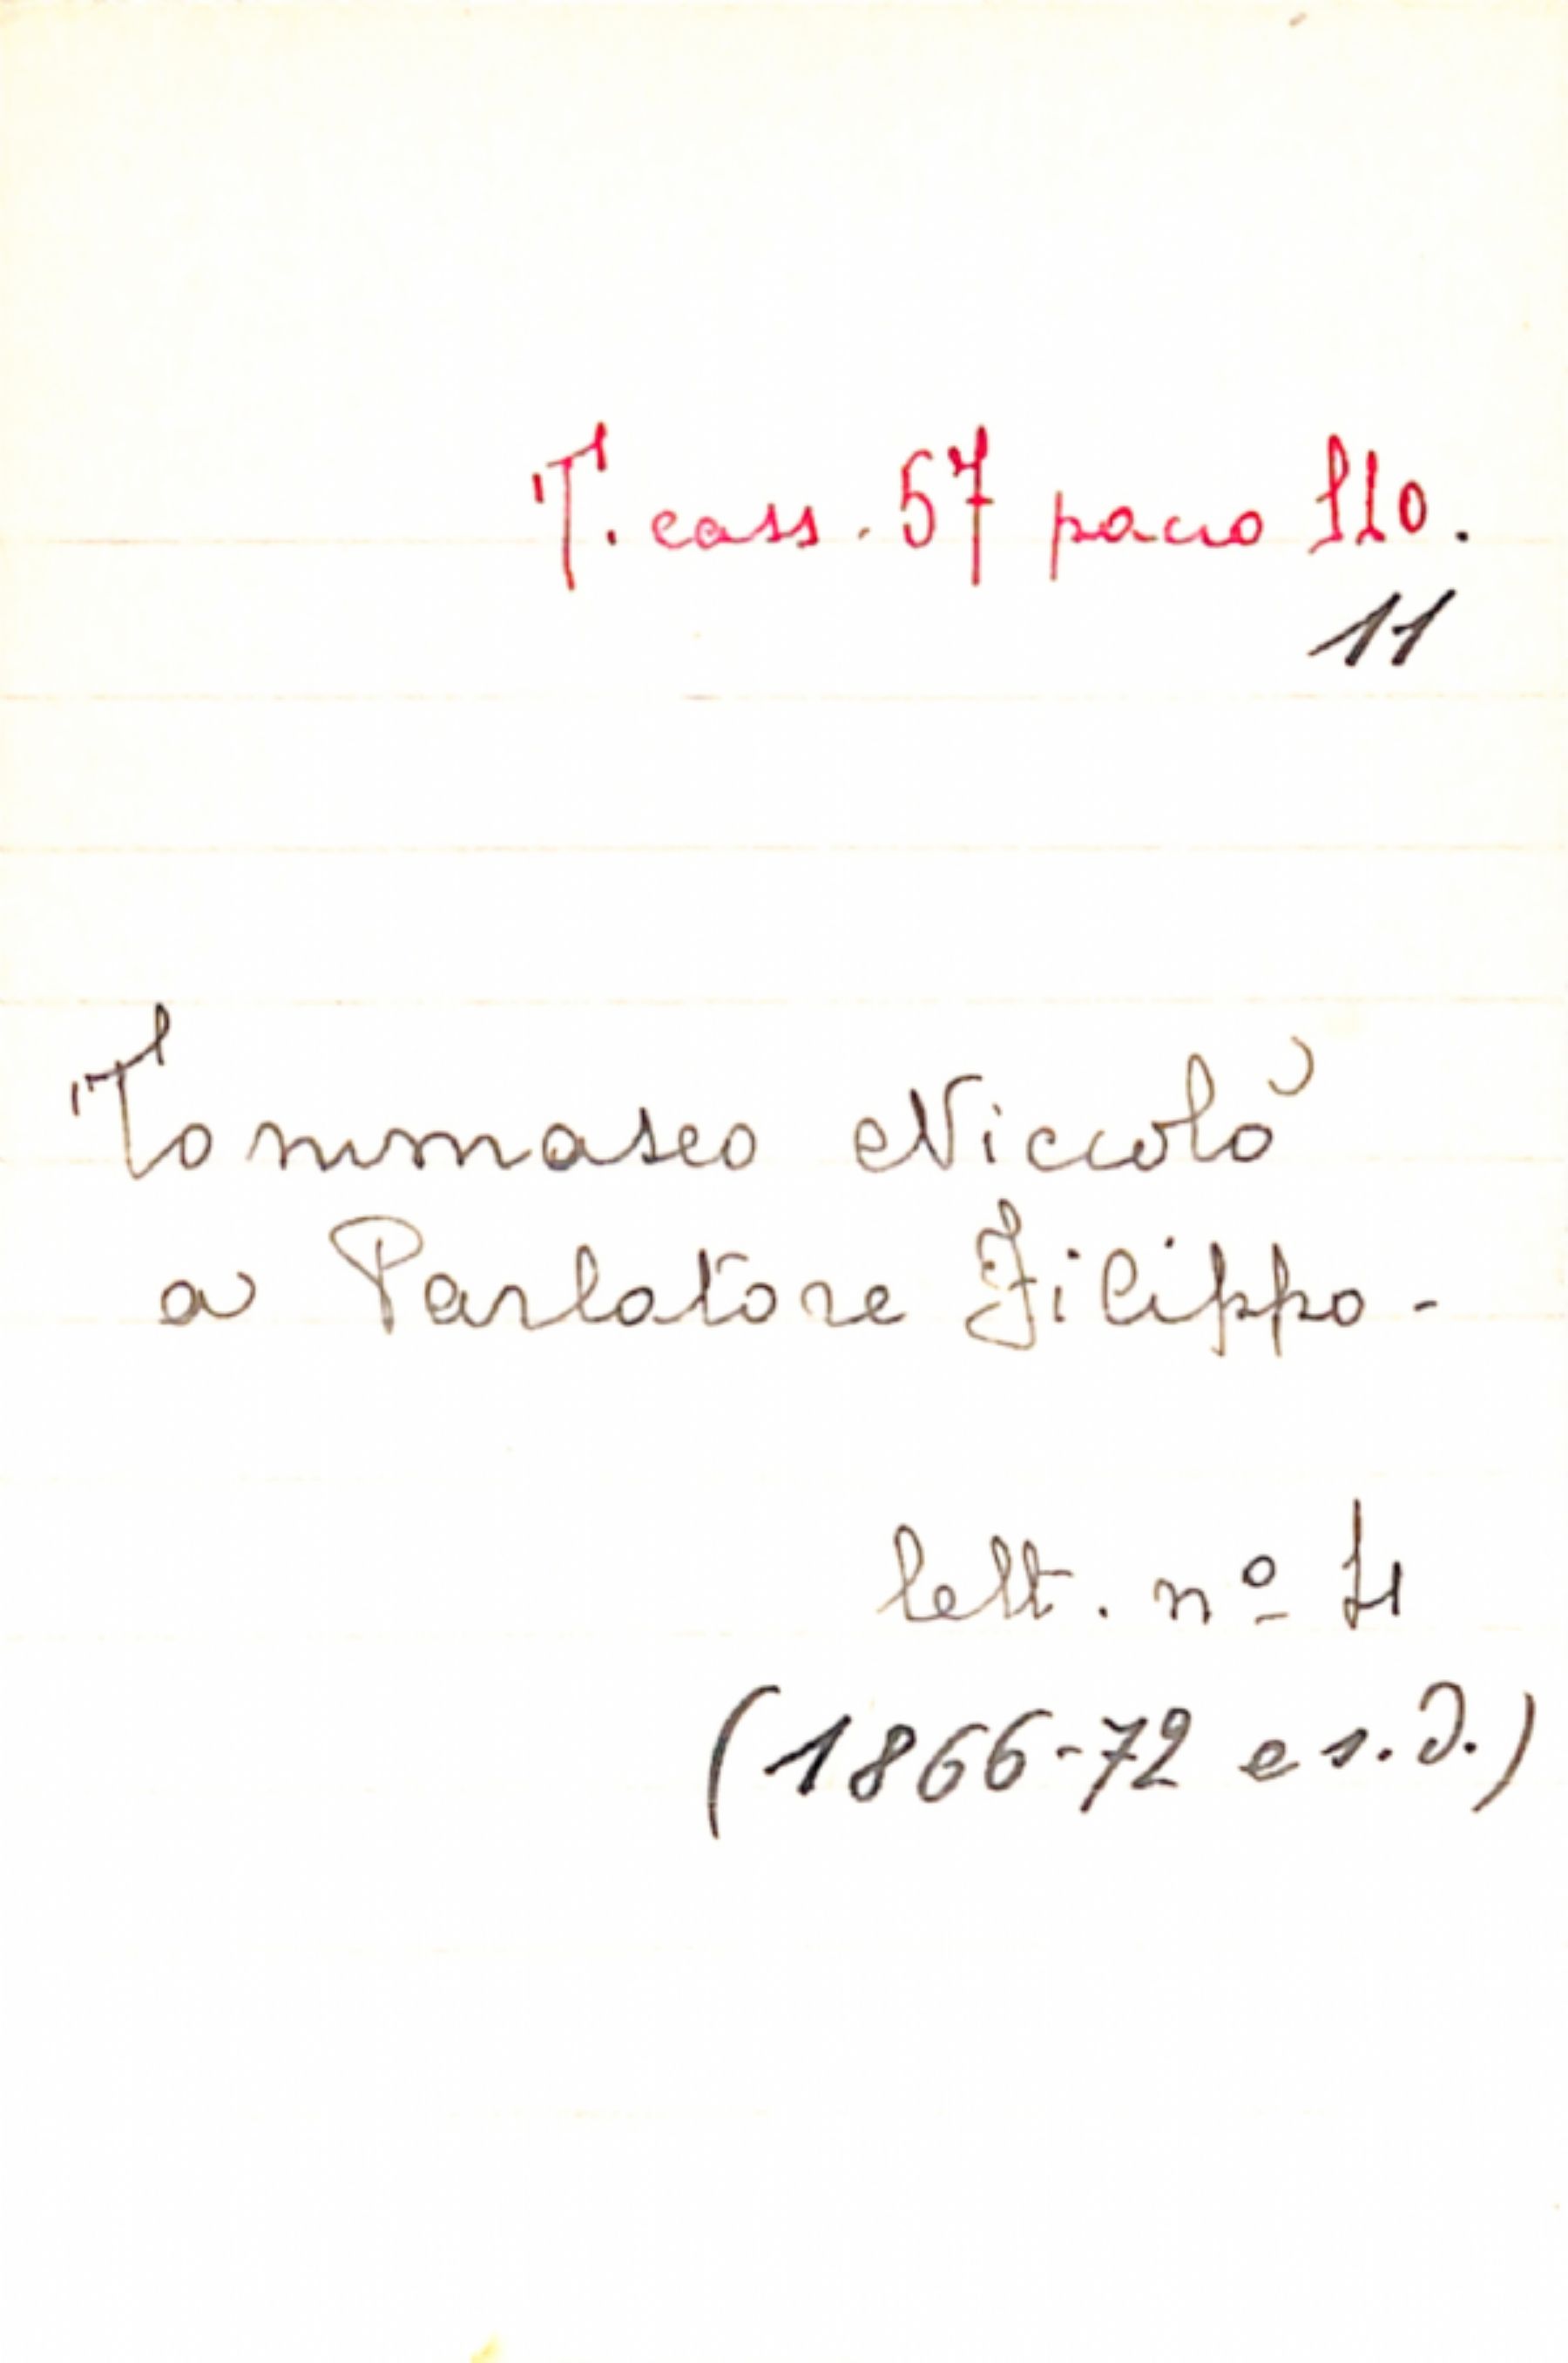 T. cass. 57 pacco 110.
11
Tommaseo Niccolò
a Parlatore Filippo -
lett. nº 4
(1866-72 e s.d.)